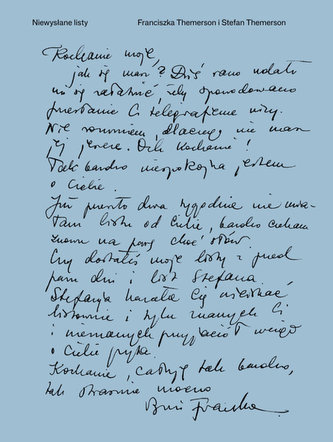 Niewysłane listy
Franciszka Themerson i Stefan Themerson
Kochanie moje,
jak się masz? Dziś rano udało
mi się załatwić, żeby spowodowano
przesłanie Ci telegraficzne wizy.
Nie rozumiem, dlaczego nie masz
jej jeszcze. Och kochanie!
Tak bardzo niespokojna jestem
o Ciebie.
Już prawie dwa tygodnie nie mia-
łam listu od Ciebie, bardzo czekam
znowu na parę choć słów.
Czy dostałeś moje listy z przed
paru dni i list Stefana.
Stefania kazała Cię uściskać,
listownie i tylu znanych Ci
i nieznanych przyjaciół wciąż
o Ciebie pyta.
Kochanie, całuję tak bardzo,
tak strasznie mocno
Franka